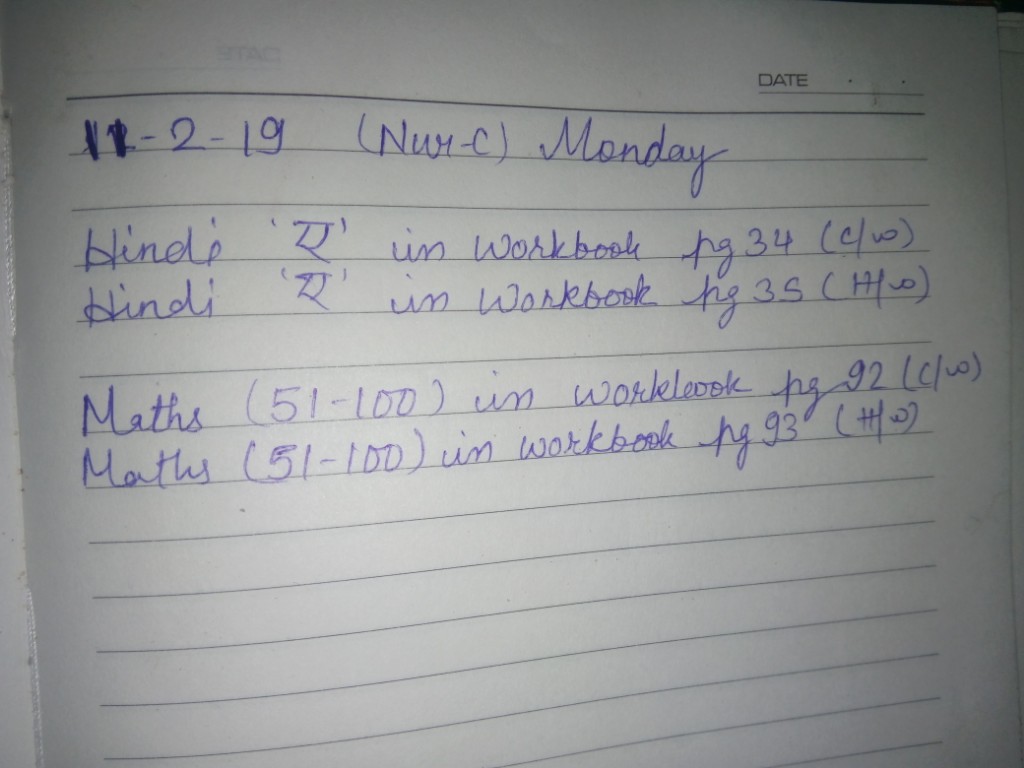 DATE
11-2-19 (Nur-C) Monday
Hindi 'ए' in Workbook pg 34 (C/w)
Hindi 'ए' in Workbook pg 35 (H/w)
Maths (51-100) in workbook pg 92 (C/w)
Maths (51-100) in workbook pg 93 (H/w)